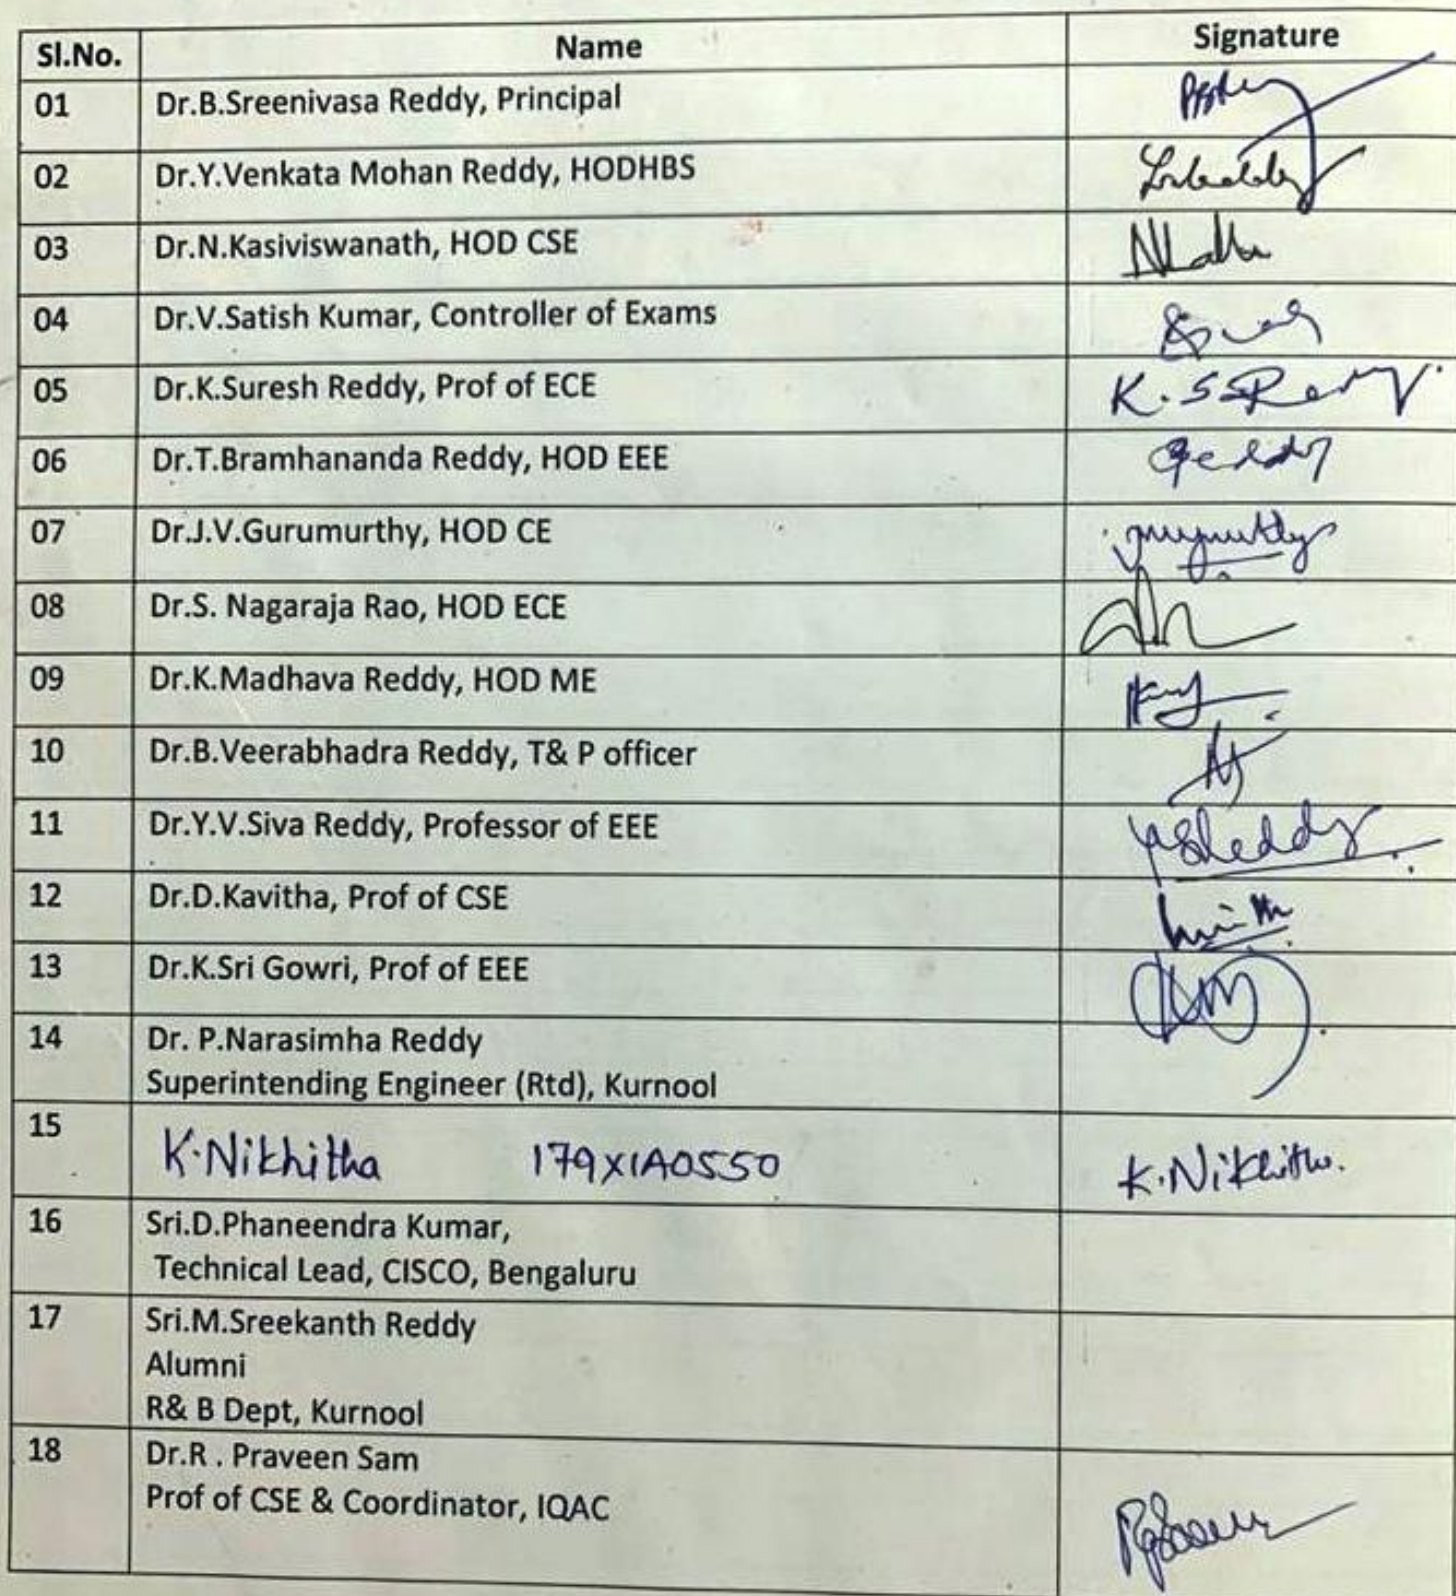 Sl.No. Name Signature
01 Dr.B.Sreenivasa Reddy, Principal
02 Dr.Y.Venkata Mohan Reddy, HODHBS
03 Dr.N.Kasiviswanath, HOD CSE
04 Dr.V.Satish Kumar, Controller of Exams
05 Dr.K.Suresh Reddy, Prof of ECE K.SSReddy
06 Dr.T.Bramhananda Reddy, HOD EEE
07 Dr.J.V.Gurumurthy, HOD CE
08 Dr.S. Nagaraja Rao, HOD ECE
09 Dr.K.Madhava Reddy, HOD ME
10 Dr.B.Veerabhadra Reddy, T& P officer
11 Dr.Y.V.Siva Reddy, Professor of EEE
12 Dr.D.Kavitha, Prof of CSE
13 Dr.K.Sri Gowri, Prof of EEE
14 Dr. P.Narasimha Reddy
Superintending Engineer (Rtd), Kurnool
15 K.Nikhitha 179X1A0550 K.Nikhitha.
16 Sri.D.Phaneendra Kumar,
Technical Lead, CISCO, Bengaluru
17 Sri.M.Sreekanth Reddy
Alumni
R& B Dept, Kurnool
18 Dr.R . Praveen Sam
Prof of CSE & Coordinator, IQAC